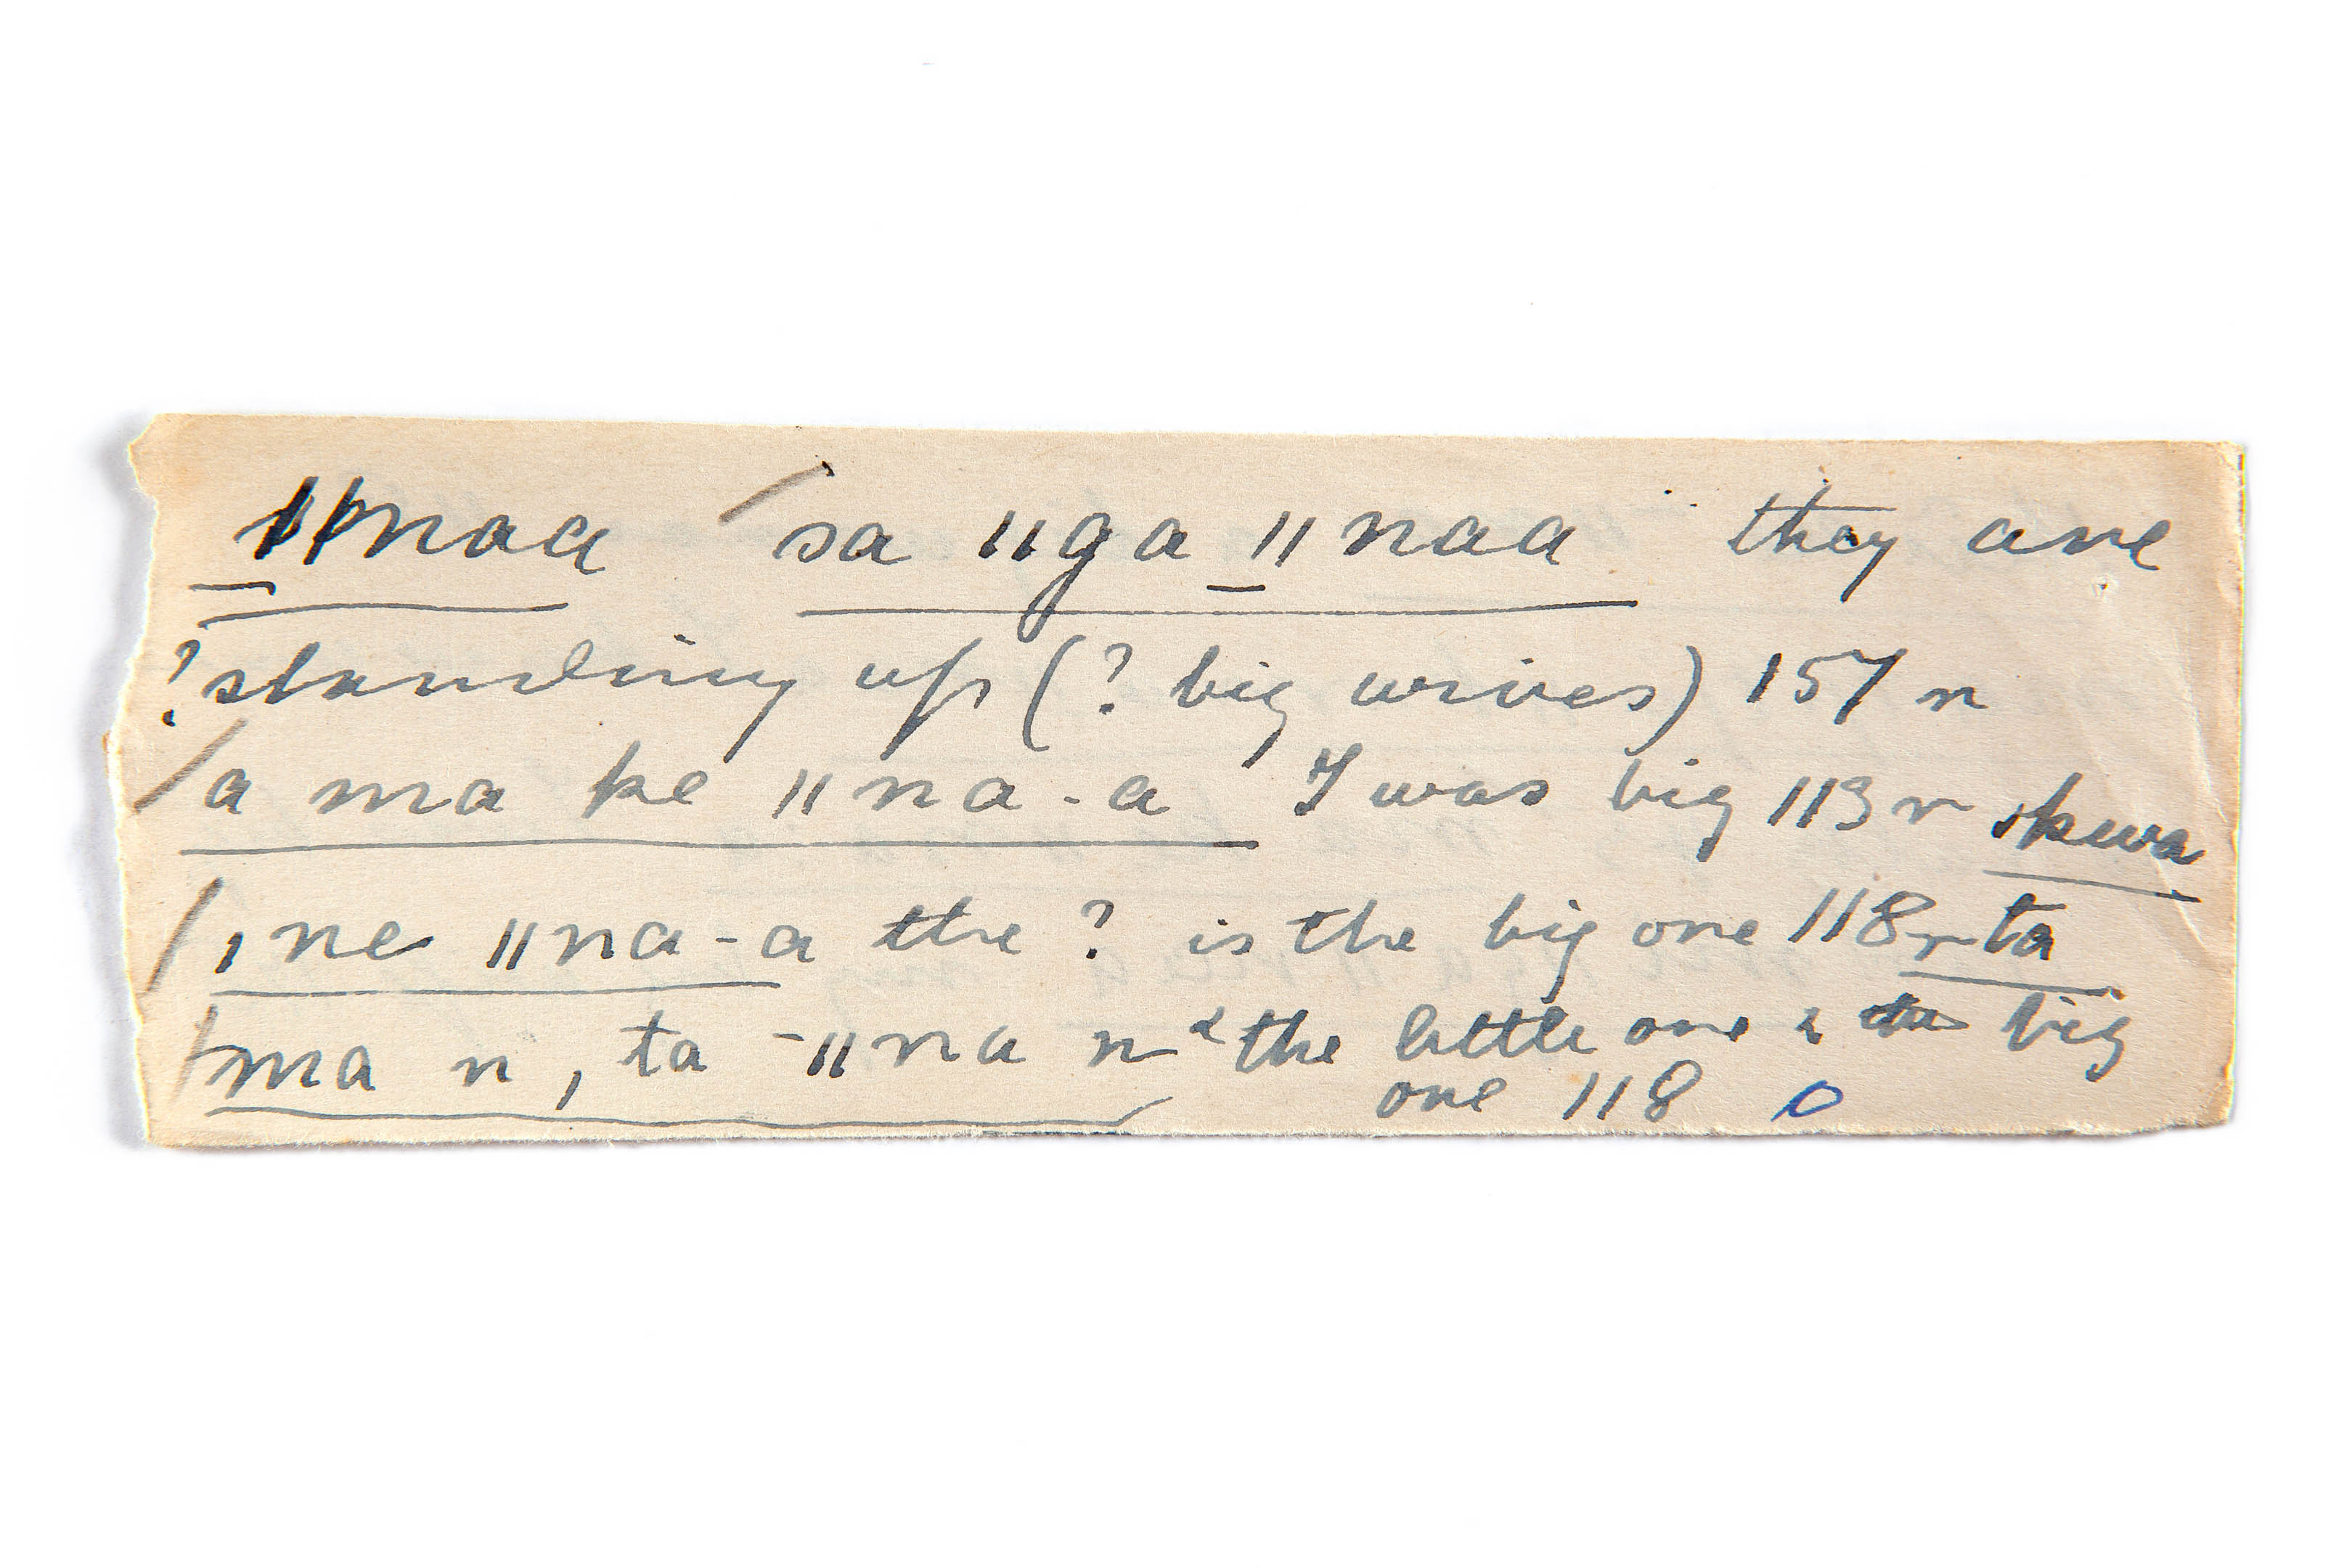 ǁknaa sa ǁga ǁnaa they are
? standing up (? big wives) 157 n
a ma ke ǁna-a I was big 113 r ǀkwa
ǀne ǁna-a the ? is the big one 118 r ta
ma n, ta -ǁna n & the little one & the big
one 118 O